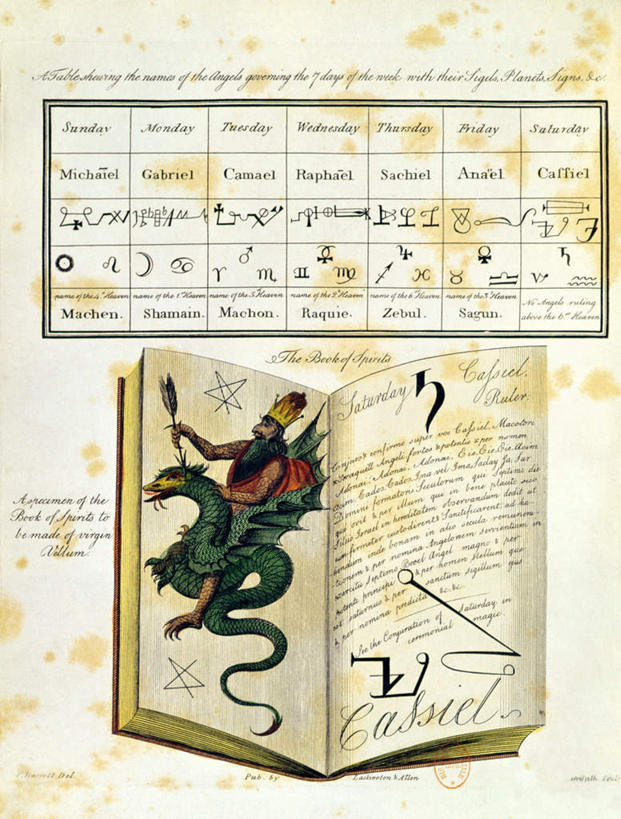 A Table shewing the names of the Angels governing the 7 days of the week with their Sigils, Planets, Signs, &c.
Sunday Monday Tuesday Wednesday Thursday Friday Saturday
Michaïel Gabriel Camael Raphaël Sachiel Anaël Caſsiel
name of the 4th Heaven name of the 1st Heaven name of the 5th Heaven name of the 2d Heaven name of the 6th Heaven name of the 3d Heaven No Angels ruling
above the 6th Heaven
Machen. Shamain. Machon. Raquie. Zebul. Sagun.
The Book of Spirits
A specimen of the
Book of Spirits to
be made of virgin
Vellum.
Saturday Caſsiel.
Ruler.
Conjuro & confirmo super vos Caſsiel, Macoton
Angeli fortes & potentes & per nomen
Adonai, Adonai, Adonae, Eie, Eie, Eie, Acim
Acim, Cados, Cados, Ina vel Ima, Saday, Ja, Sar
Domini formatoris Seculorum qui Septimo die
quievit & per illum qui in bene placito suo
filiis Israel in hereditatem observandum dedit ut
custodirent & Sanctificarent, ad
inde bonam in alio secula
& per nomina Angelorum servientium in
Septimo Angelo magno &
potenti principi & per nomen Stellae quae
est Saturnus & per sanctum sigillum ejus
& per nomina predicta &c. &c.
See the Conjuration of Saturday in
ceremonial magic.
Caſsiel.
F. Barrett Del.
Pub. by Lackington & Allen